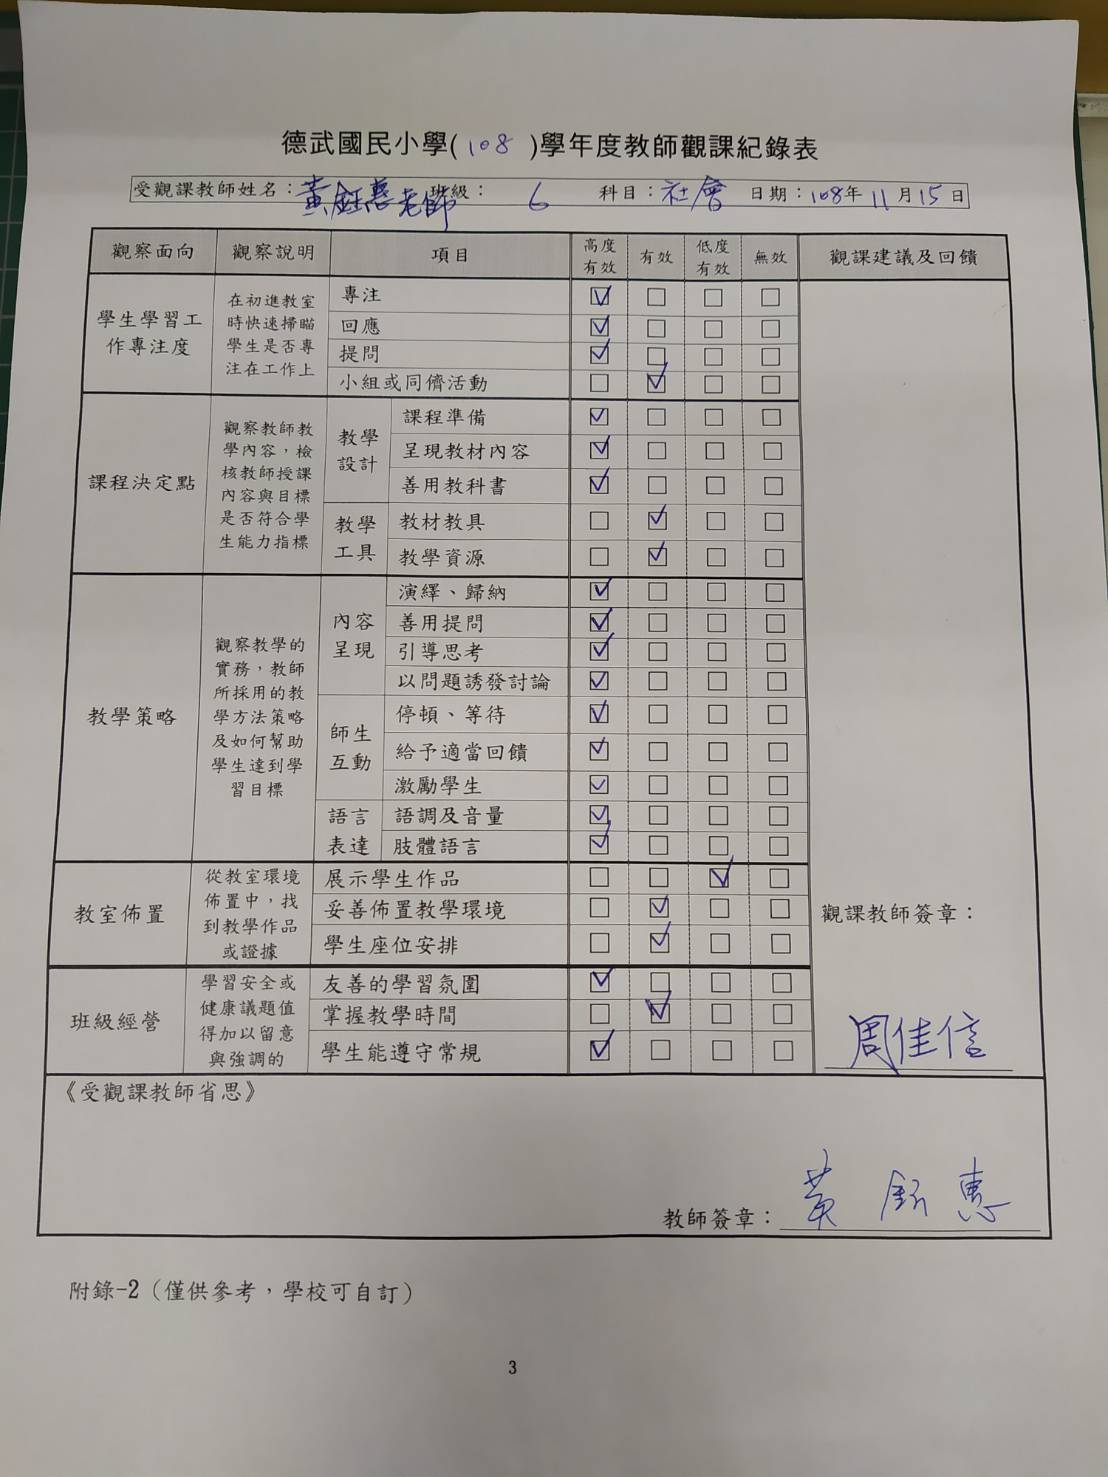 德武國民小學(108)學年度教師觀課紀錄表
受觀課教師姓名：黃鈺惠老師 班級：6 科目：社會 日期：108年11月15日
觀察面向 觀察說明 項目 高度有效 有效 低度有效 無效 觀課建議及回饋
學生學習工作專注度
在初進教室時快速掃瞄學生是否專注在工作上
專注 ☑ □ □ □
回應 ☑ □ □ □
提問 ☑ □ □ □
小組或同儕活動 □ ☑ □ □
課程決定點
觀察教師教學內容，檢核教師授課內容與目標是否符合學生能力指標
教學設計
課程準備 ☑ □ □ □
呈現教材內容 ☑ □ □ □
善用教科書 ☑ □ □ □
教學工具
教材教具 □ ☑ □ □
教學資源 □ ☑ □ □
教學策略
觀察教學的實務，教師所採用的教學方法策略及如何幫助學生達到學習目標
內容呈現
演繹、歸納 ☑ □ □ □
善用提問 ☑ □ □ □
引導思考 ☑ □ □ □
以問題誘發討論 ☑ □ □ □
師生互動
停頓、等待 ☑ □ □ □
給予適當回饋 ☑ □ □ □
激勵學生 ☑ □ □ □
語言表達
語調及音量 ☑ □ □ □
肢體語言 ☑ □ □ □
教室佈置
從教室環境佈置中，找到教學作品或證據
展示學生作品 □ □ ☑ □
妥善佈置教學環境 □ ☑ □ □
學生座位安排 □ ☑ □ □
觀課教師簽章：
班級經營
學習安全或健康議題值得加以留意與強調的
友善的學習氛圍 ☑ □ □ □
掌握教學時間 □ ☑ □ □
學生能遵守常規 ☑ □ □ □
周佳信
《受觀課教師省思》
教師簽章：黃鈺惠
附錄-2（僅供參考，學校可自訂）
3